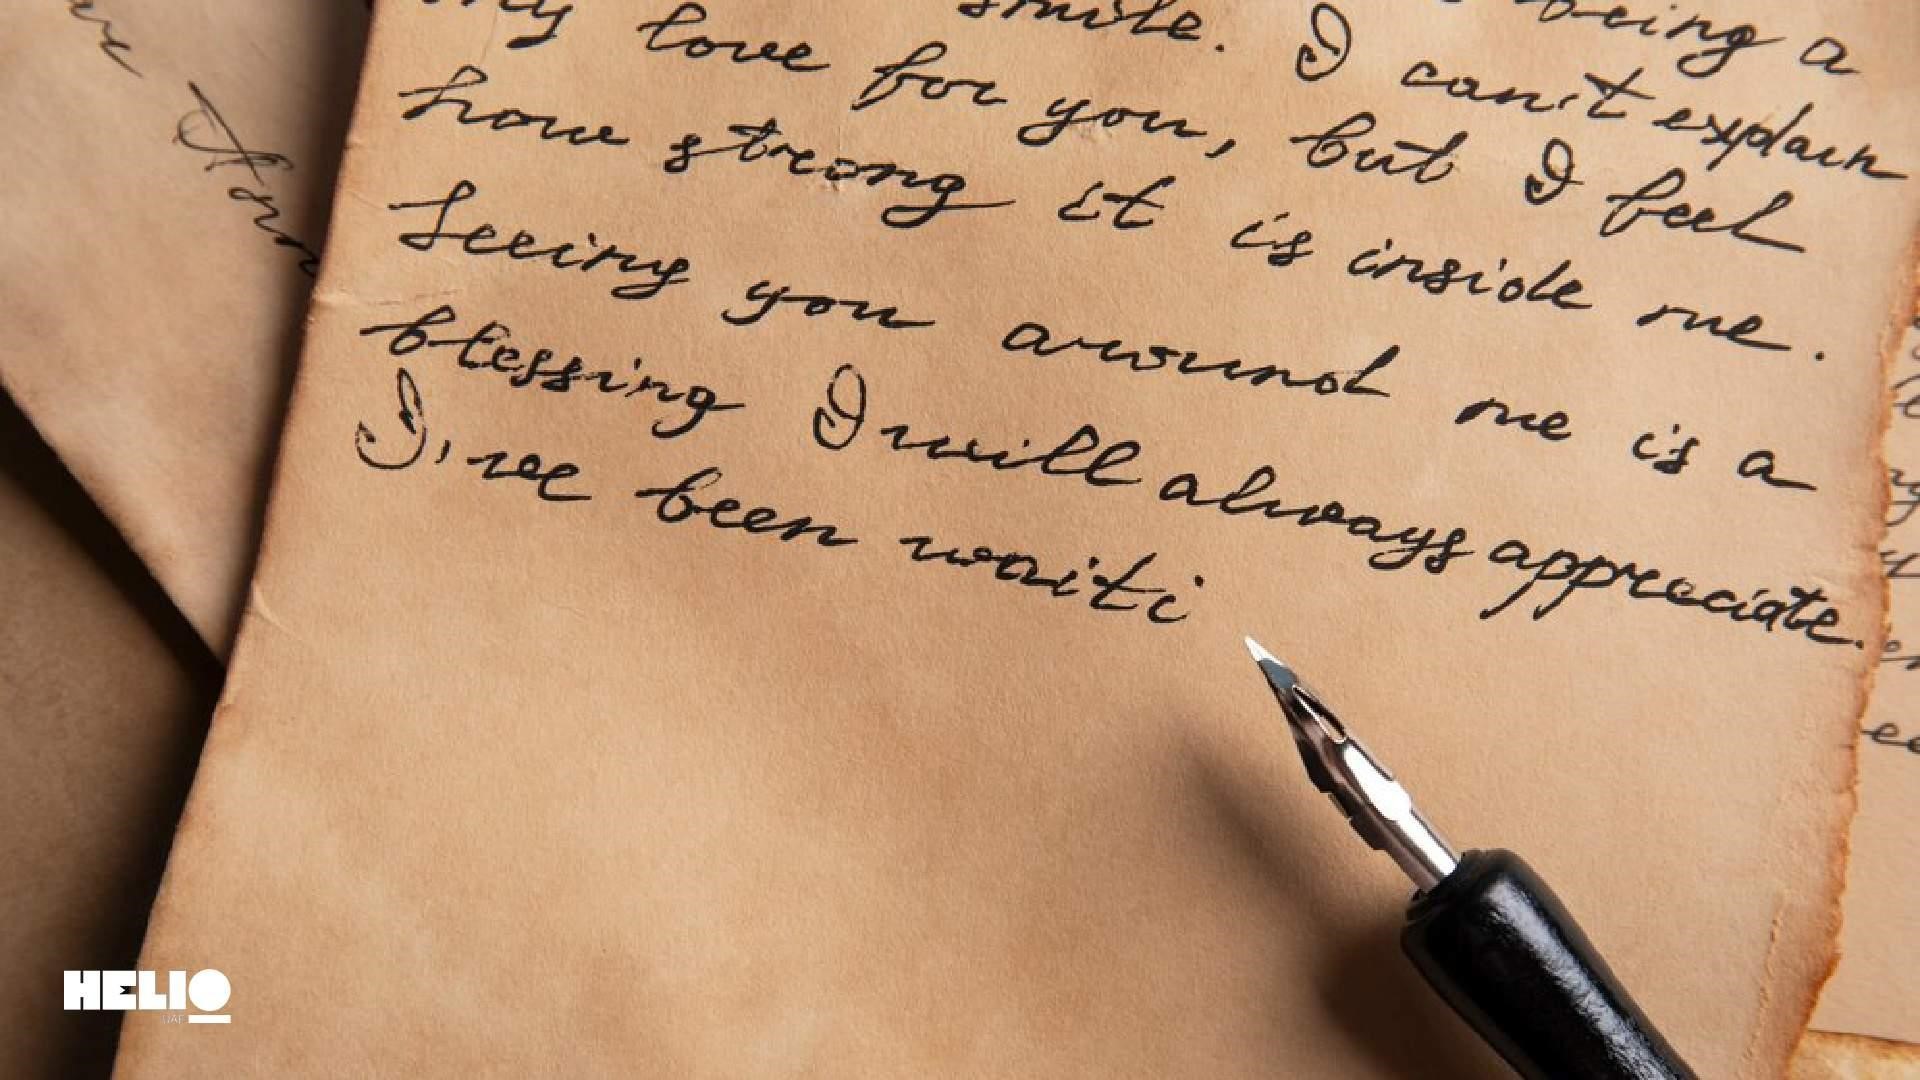 smile.
being a
my love for you, but I can't explain
how strong it is inside me. I feel
Seeing you around me is a
blessing I will always appreciate.
I've been waiti
HELIO
UAE